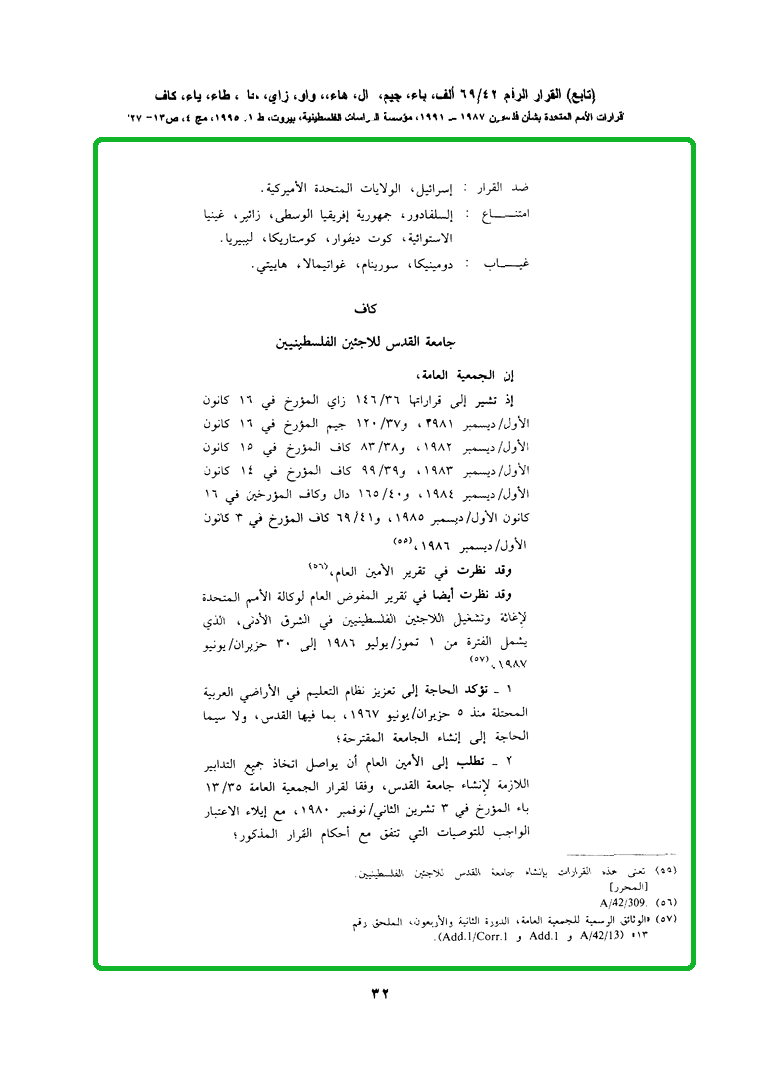 (تابع) القرار الرقم ٦٩/٤٢ ألف، باء، جيم، دال، هاء، واو، زاي، حاء، طاء، ياء، كاف
قرارات الأمم المتحدة بشأن فلسطين ١٩٨٧ – ١٩٩١، مؤسسة الدراسات الفلسطينية، بيروت، ط ١، ١٩٩٥، مج ٤، ص١٣- ٢٧
ضد القرار : إسرائيل، الولايات المتحدة الأميركية.
امتنـــاع : إلسلفادور، جمهورية إفريقيا الوسطى، زائير، غينيا
الاستوائية، كوت ديفوار، كوستاريكا، ليبيريا.
غيـــاب : دومينيكا، سورينام، غواتيمالا، هاييتي.
كاف
جامعة القدس للاجئين الفلسطينيين
إن الجمعية العامة،
إذ تشير إلى قراراتها ١٤٦/٣٦ زاي المؤرخ في ١٦ كانون
الأول/ديسمبر ١٩٨١، و١٢٠/٣٧ جيم المؤرخ في ١٦ كانون
الأول/ديسمبر ١٩٨٢، و٨٣/٣٨ كاف المؤرخ في ١٥ كانون
الأول/ديسمبر ١٩٨٣، و٩٩/٣٩ كاف المؤرخ في ١٤ كانون
الأول/ديسمبر ١٩٨٤، و١٦٥/٤٠ دال وكاف المؤرخين في ١٦
كانون الأول/ديسمبر ١٩٨٥، و٦٩/٤١ كاف المؤرخ في ٣ كانون
الأول/ديسمبر ١٩٨٦،(٥٥)
وقد نظرت في تقرير الأمين العام،(٥٦)
وقد نظرت أيضا في تقرير المفوض العام لوكالة الأمم المتحدة
لإغاثة وتشغيل اللاجئين الفلسطينيين في الشرق الأدنى، الذي
يشمل الفترة من ١ تموز/يوليو ١٩٨٦ إلى ٣٠ حزيران/يونيو
١٩٨٧،(٥٧)
١ ـ تؤكد الحاجة إلى تعزيز نظام التعليم في الأراضي العربية
المحتلة منذ ٥ حزيران/يونيو ١٩٦٧، بما فيها القدس، ولا سيما
الحاجة إلى إنشاء الجامعة المقترحة؛
٢ ـ تطلب إلى الأمين العام أن يواصل اتخاذ جميع التدابير
اللازمة لإنشاء جامعة القدس، وفقا لقرار الجمعية العامة ١٣/٣٥
باء المؤرخ في ٣ تشرين الثاني/نوفمبر ١٩٨٠، مع إيلاء الاعتبار
الواجب للتوصيات التي تتفق مع أحكام القرار المذكور؛
(٥٥) تعنى هذه القرارات بإنشاء جامعة القدس للاجئين الفلسطينيين.
[المحرر]
(٥٦) A/42/309.
(٥٧) «الوثائق الرسمية للجمعية العامة، الدورة الثانية والأربعون، الملحق رقم
١٣» (A/42/13 و Add.1 و Add.1/Corr.1).
٣٢